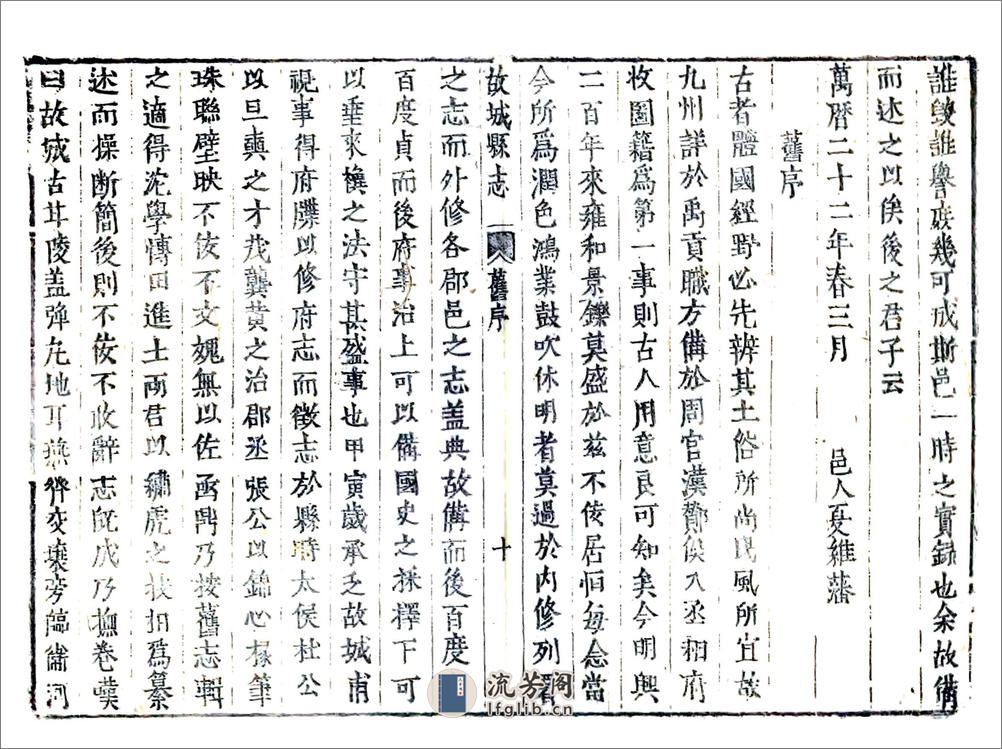 誰毀誰譽庶幾可成斯邑一時之實錄也余故備
而述之以俟後之君子云
萬曆二十二年春三月　邑人夏維藩
舊序
古者體國經野必先辨其土俗所尚民風所宜故
九州詳於禹貢職方備於周官漢酇侯入丞相府
收圖籍爲第一事則古人用意良可知矣今明興
二百年來雍和景鑠莫盛於兹不佞居恒每念當
今所爲潤色鴻業鼓吹休明者莫過於内修列署
故城縣志　舊序　十
之志而外修各郡邑之志盖典故備而後百度
百度貞而後府事治上可以備國史之採擇下可
以垂來禩之法守甚盛事也甲寅歲承乏故城甫
視事得府牒以修府志而徵志於縣時太侯杜公
以旦奭之才茂龔黄之治郡丞張公以錦心椽筆
珠聯壁映不佞不文媿無以佐函鼎乃按舊志輯
之適得沱學傅田進士兩君以繡虎之技相爲纂
述而操断簡後則不佞不敢辭志既成乃撫卷嘆
曰故城古甘陵盖弹丸地耳燕齊交壤旁臨衛河
流芳阁
lfglib.cn